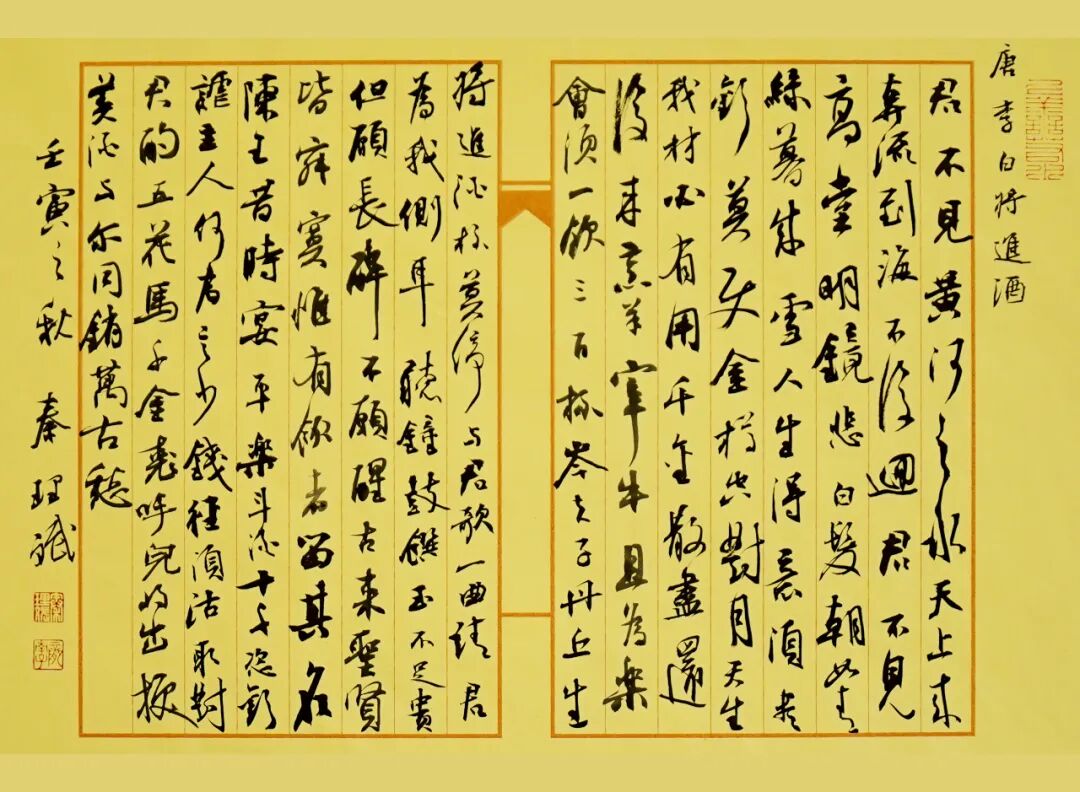 唐李白将進酒
君不見黃河之水天上來
奔流到海不復迴君不見
高堂明鏡悲白髮朝如青
絲暮成雪人生得意須盡
歡莫使金樽空對月天生
我材必有用千金散盡還
復來烹羊宰牛且為樂
會須一飲三百杯岑夫子丹丘生
将進酒杯莫停与君歌一曲請君
為我側耳聽鐘鼓饌玉不足貴
但願長醉不願醒古來聖賢
皆寂寞惟有飲者留其名
陳王昔時宴平樂斗酒十千恣歡
謔主人何為言少錢徑須沽取對
君酌五花馬千金裘呼兒将出換
美酒与爾同銷萬古愁
壬寅之秋 秦理斌